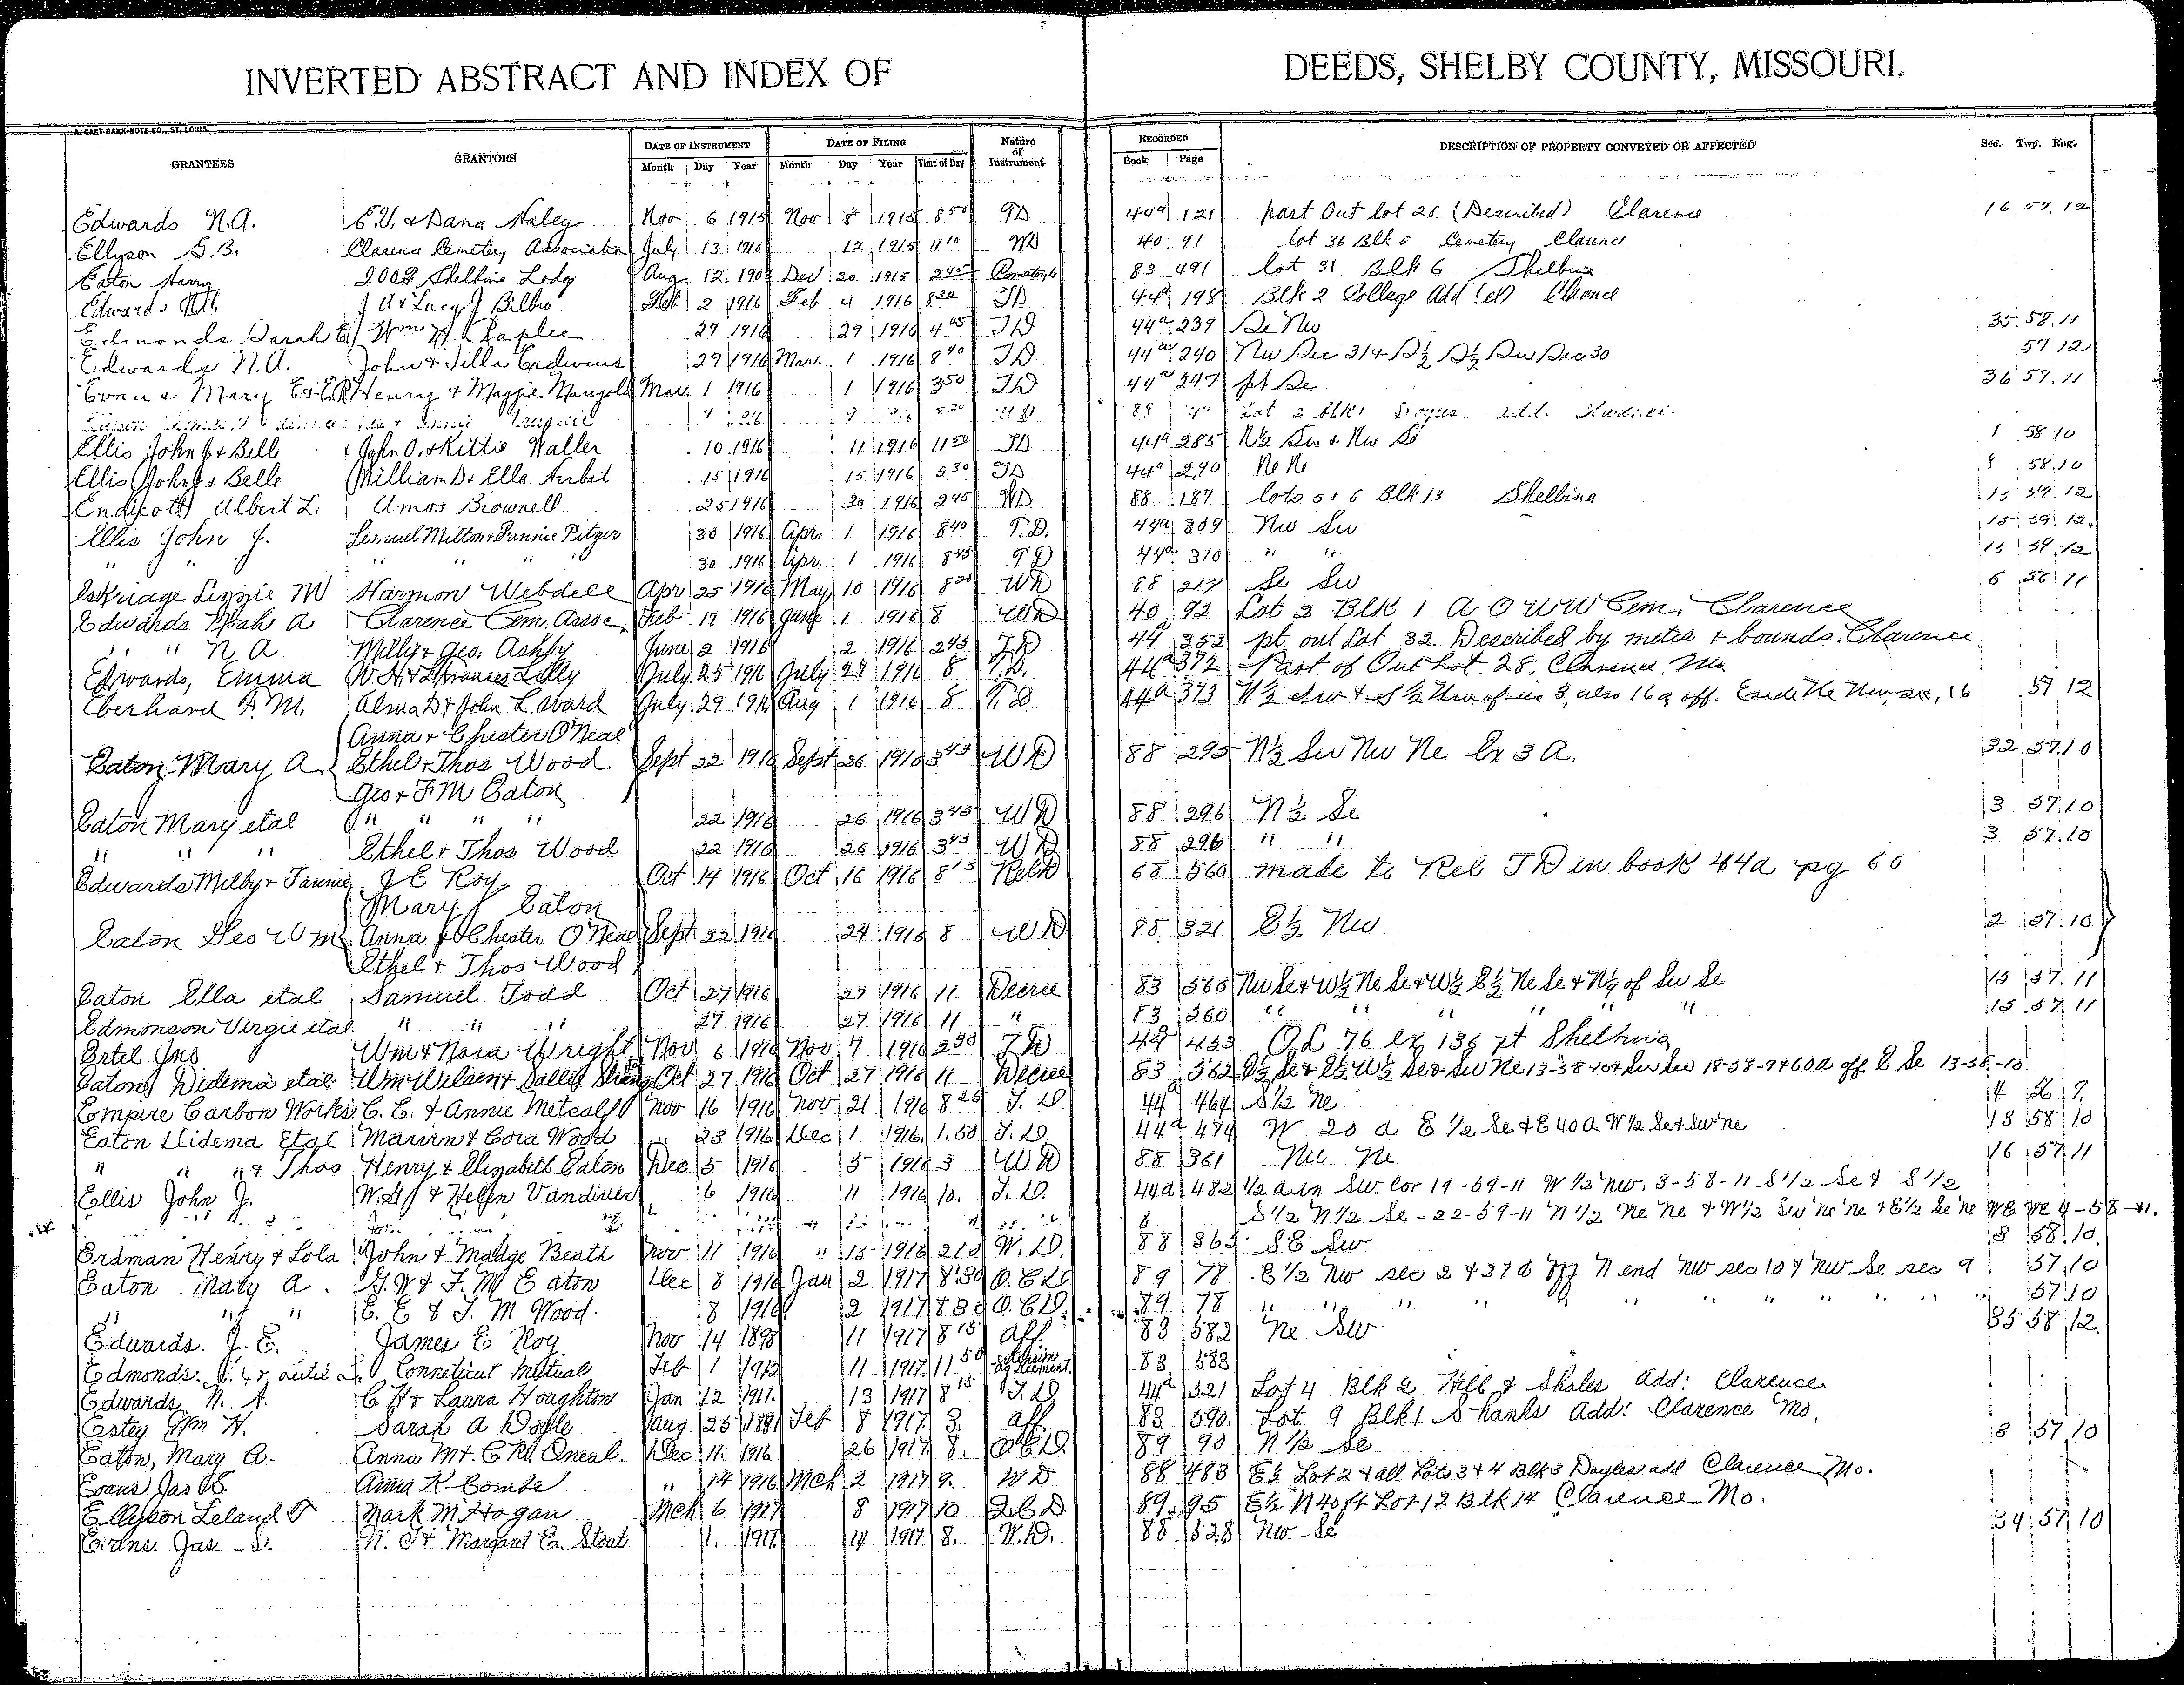 INVERTED ABSTRACT AND INDEX OF DEEDS, SHELBY COUNTY, MISSOURI.
A. GAST BANK NOTE CO., ST. LOUIS.
GRANTEES GRANTORS DATE OF INSTRUMENT DATE OF FILING Nature of Instrument RECORDED DESCRIPTION OF PROPERTY CONVEYED OR AFFECTED Sec. Twp. Rng.
Month Day Year Month Day Year Time of Day Book Page
Edwards N.A. E.V. & Dana Haley Nov 6 1915 Nov 8 1915 8 50 TD 44a 121 part Out lot 28 (Described) Clarence 16 57 12
Ellyson G.B. Clarence Cemetery Association July 13 1915 12 1915 11 10 WD 40 91 Lot 36 Blk 5 Cemetery Clarence
Eaton Harry IOOF Shelbina Lodge Aug 12 190 Dec 20 1915 2 45 83 491 lot 31 Blk 6 Shelbina
Edwards N.A. J A & Lucy J Bilbro Feb 2 1916 Feb 4 1916 8 30 TD 44a 198 Blk 2 College Add Clarence
Edmonds Sarah E Wm H. Raplee 29 1916 29 1916 4 05 TD 44a 239 Se Nw 35 58 11
Edwards N.A. John & Tilla Erdwins 29 1916 Mar. 1 1916 8 40 TD 44a 240 Nw Sec 31 & S½ S½ Sw Sec 30 57 12
Evans Mary E & E R Henry & Maggie Mangold Mar. 1 1916 1 1916 3 50 TD 44a 247 pt Se 36 59 11
Lot 2 Blk 1 add.
Ellis John J & Belle John O. & Kittie Waller 10 1916 11 1916 11 50 TD 44a 285 N½ Sw & Nw Se 1 58 10
Ellis John J & Belle William D & Ella 15 1916 15 1916 5 30 TD 44a 290 Ne Ne 8 58 10
Endicott Albert L. Amos Brownell 25 1916 30 1916 2 45 WD 88 187 lots 5 & 6 Blk 13 Shelbina 13 59 12
Ellis John J. Lemuel Milton & Fannie Pitzer 30 1916 Apr. 1 1916 8 40 T.D. 44a 309 Nw Sw 15 59 12
" " " " " " 30 1916 Apr. 1 1916 8 45 TD 44a 310 " " 15 59 12
Eskridge Lizzie M Harmon Webdell Apr 25 1916 May 10 1916 8 20 WD 88 217 Se Sw 6 56 11
Edwards Noah A Clarence Cem. Assoc. Feb 12 1916 June 1 1916 8 WD 40 92 Lot 2 Blk 1 A O U W Cem. Clarence
" " N A Milby & Geo. Ashby June 2 1916 2 1916 2 45 TD 44a 352 pt out Lot 32. Described by metes & bounds. Clarence
Edwards, Emma W.H. & Frances Lilly July 25 1916 July 27 1916 8 T.D. 44a 372 Part of Out Lot 28, Clarence, Mo
Eberhard F.M. Alma D & John L. Ward July 29 1916 Aug 1 1916 8 T.D. 44a 373 N½ Sw & S½ Nw of sec 3, also 16 a off. E side Ne Nw, sec, 16 57 12
Anna & Chester O'Neal
Eaton Mary A Ethel & Thos Wood. Sept 22 1916 Sept 26 1916 3 45 WD 88 295 N½ Sw Nw Ne Ex 3 A. 32 57 10
Geo & F M Eaton
Eaton Mary etal " " " " 22 1916 26 1916 3 45 WD 88 296 N½ Se 3 57 10
" " " Ethel & Thos Wood 22 1916 26 1916 3 45 WD 88 296 " " 3 57 10
Edwards Milby & Fannie J E Roy Oct 14 1916 Oct 16 1916 8 15 Rel D 68 560 made to Rel TD in book 44a pg 60
Mary J Eaton
Eaton Geo W M Anna & Chester O'Neal Sept 22 1916 24 1916 8 WD 88 321 E½ Nw 2 57 10
Ethel & Thos Wood
Eaton Ella etal Samuel Todd Oct 27 1916 27 1916 11 Decree 83 560 Nw Se & W½ Ne Se & W½ E½ Ne Se & N½ of Sw Se 15 57 11
Edmonson Virgie etal " " " 27 1916 27 1916 11 " 83 560 " " " " " 15 57 11
Ertel Jno Wm & Nora Wright Nov 6 1916 Nov 7 1916 2 30 TD 44a 453 OL 76 ex 136 ft Shelbina
Eaton Didema etal Wm Wilson & Sallie Oct 27 1916 Oct 27 1916 11 Decree 83 562 E½ Se & E½ W½ Se & Sw Ne 13-58-10 & Sw Sw 18-58-9 & 60a off E Se 13-58-10
Empire Carbon Works C. C. & Annie Metcalf Nov 16 1916 Nov 21 1916 8 25 T.D. 44a 464 S½ Ne 4 56 9
Eaton Didema Etal Marvin & Cora Wood " 23 1916 Dec 1 1916 1.50 T.D. 44a 474 W 20 a E ½ Se & E 40 a W ½ Se & Sw Ne 13 58 10
" " " & Thos Henry & Elizabeth Eaton Dec 5 1916 5 1916 3 WD 88 361 Nw Ne 16 57 11
Ellis John J. W.S. & Helen Vandiver 6 1916 11 1916 10. T.D. 44a 482 ½ a in Sw. Cor 19-59-11 W ½ Nw. 3-58-11 S ½ Se & S ½
S ½ N ½ Se - 22-59-11 N ½ Ne Ne & W½ Sw Ne Ne & E½ Se Ne Ne 4-58-11.
Erdman Henry & Lola John & Madge Beath Nov 11 1916 " 15 1916 2 10 W.D. 88 365 SE Sw 3 58 10
Eaton Mary A. G.W & F. M Eaton Dec 8 1916 Jan 2 1917 8 30 Q.C.D. 89 78 E ½ Nw sec 2 & 27 a off N end Nw sec 10 & Nw Se sec 9 57 10
" " " E. E & T. M Wood. 8 1916 2 1917 8 30 Q.C.D. 89 78 " " " " " " 57 10
Edwards. J. E. James E Roy Nov 14 1898 11 1917 8 15 Aff 83 582 Ne Sw 35 58 12
Edmonds. Conneticut Mutual Feb 1 1913 11 1917 11 50 Extension Agreement 83 583
Edwards N. A. C H & Laura Houghton Jan 12 1917. 13 1917 8 15 T.D 44a 521 Lot 4 Blk 2 Hill & Shales Add: Clarence
Estey Wm H. Sarah A Doyle Aug 25 1891 Feb 8 1917 3. Aff. 83 590 Lot 9 Blk 1 Shanks Add: Clarence Mo.
Eaton, Mary A. Anna M & C R Oneal. Dec 11. 1916 26 1917 8. Q C D. 89 90 N ½ Se 3 57 10
Evans Jas S. Anna K Combs " 14 1916 Mch 2 1917 9. WD 88 483 E½ Lot 2 & all Lots 3 & 4 Blk 3 Doyles add Clarence Mo.
Ellyson Leland T Mark M Hogan Mch 6 1917 8 1917 10 Q C D 89 95 E½ N 40 ft Lot 12 Blk 14 Clarence Mo.
Evans. Jas. S. W. T & Margaret E. Stout 1. 1917 14 1917 8. W.D. 88 528 Nw Se 34 57 10